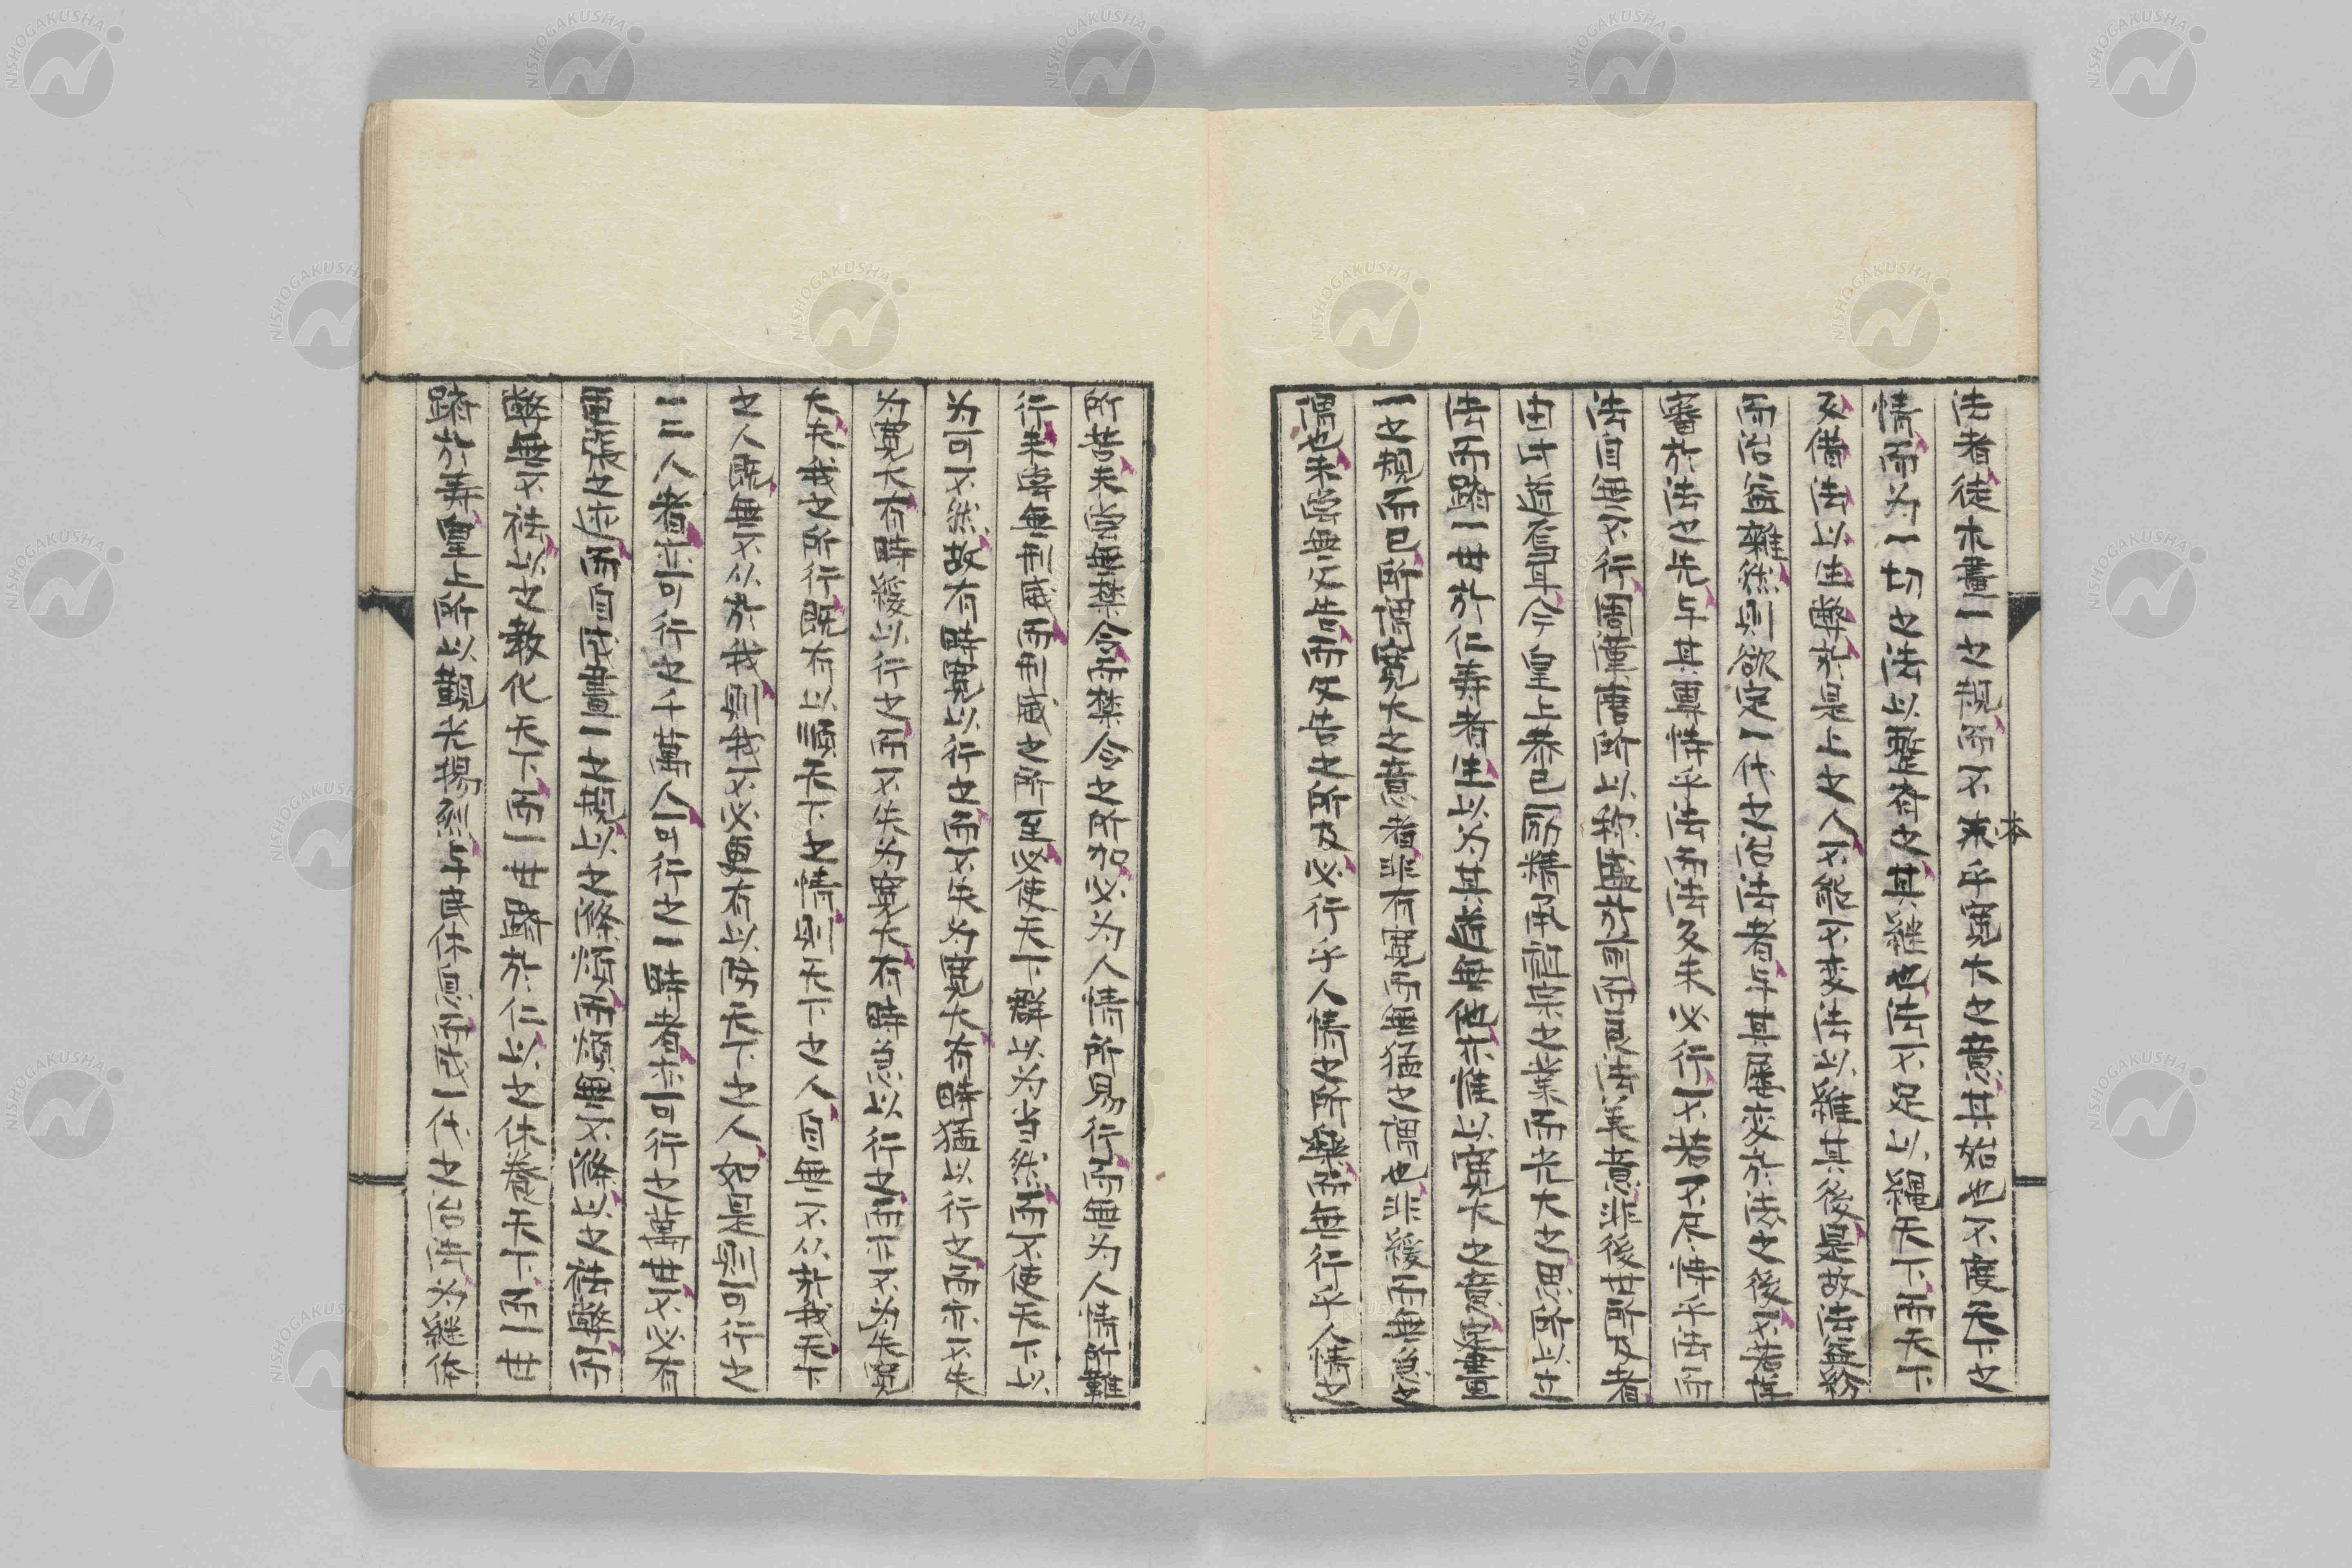 法者徒木畫一之規而不来乎寬大之意其始也不度天下之
本
情而為一切之法以整齊之其継也法不足以縄天下而天下
又備法以法弊於是上之人不能不变法以継其後是故法益
而治益雜然則欲定一代之治法者与其屢变於法之後不若
審於法之先与其專特乎法而法又未必行不若不尽特乎法而
法自無不行周漢唐所以称盛於前而良法美意非後世所及者
由此道焉耳今皇上恭已励精承祖宗之業而光大之思所以立
法而躋一世於仁壽者臣以為其道無他亦惟以寬大之意寓畫
一之規而已所謂寬大之意者非有寬而無猛之謂也非緩而無急之
謂也未嘗無文告而文告之所及必行乎人情之所樂而無行乎人情之
所苦未嘗無禁令而禁令之所加必為人情所易行而無為人情所難
行未嘗無刑威而刑威之所至必使天下群以為当然而不使天下以
為可不然故有時寬以行之而不失為寬大有時猛以行之而亦不失
為寬大有時緩以行之而不失為寬大有時急以行之而亦不為失寬
大夫我之所行既有以順天下之情則天下之人自無不从於我天下
之人既無不从於我則我不必更有以防天下之人如是則可行之
一二人者亦可行之千萬人可行之一時者亦可行之萬世不必有
更張之法而自成畫一之規以之條煩而煩無不條以之祛弊而
弊無不祛以之教化天下而一世躋於仁以之休養天下而一世
躋於壽皇上所以覲光揚烈与民休息而成一代之治法為継体